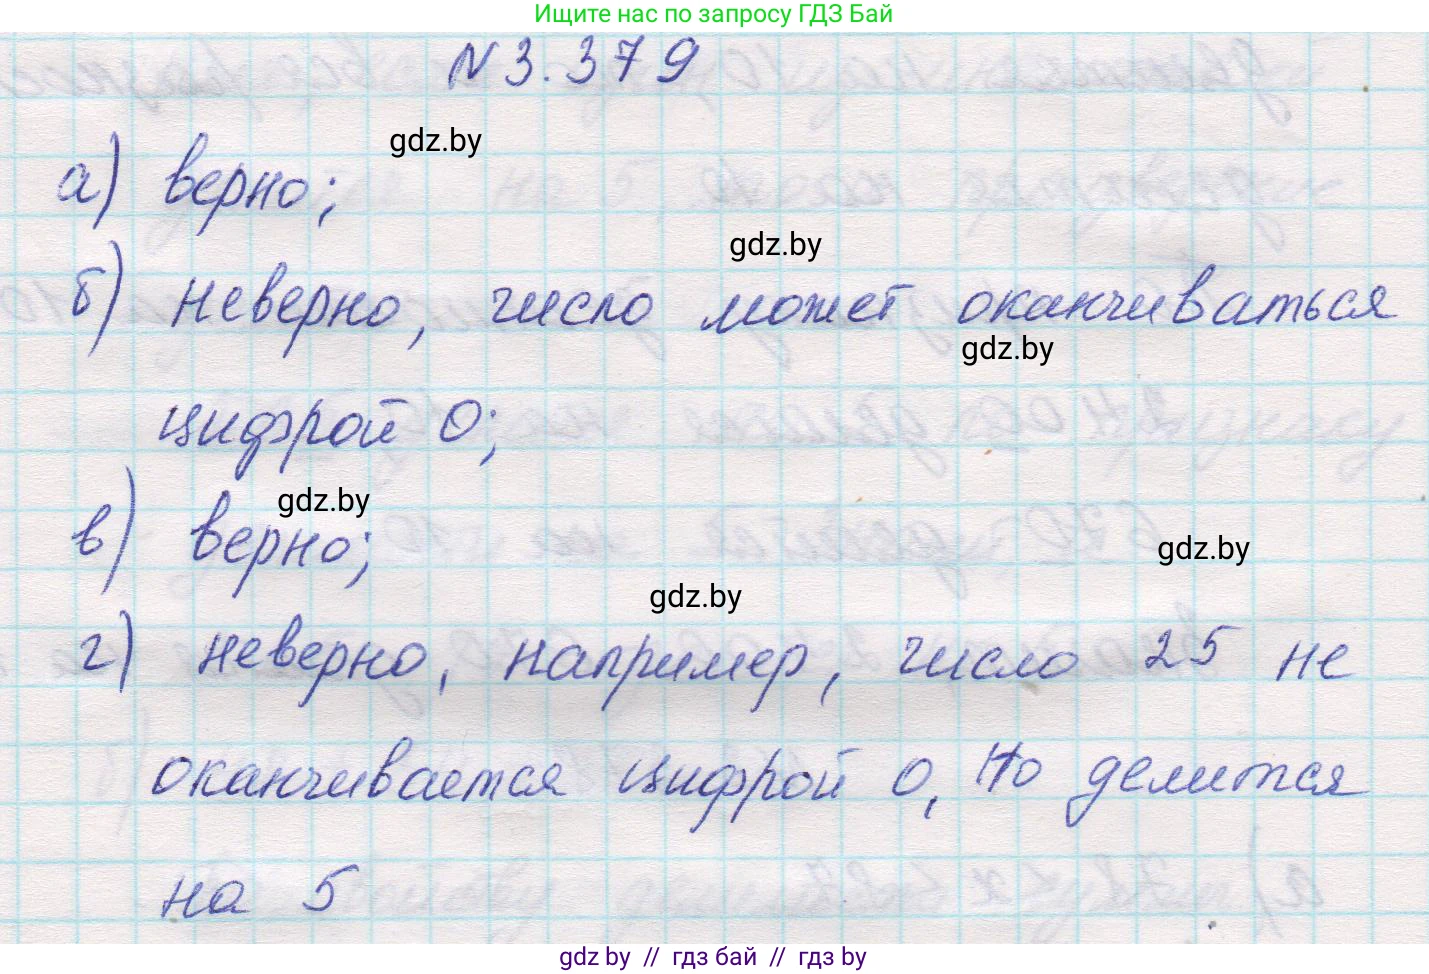 Ищите нас по запросу ГДЗ Бай
N 3.379
gdz.by
а) верно;
gdz.by
б) неверно, число может оканчиваться
gdz.by
цифрой 0;
gdz.by
в) верно;
gdz.by
gdz.by
г) неверно, например, число 25 не
оканчивается цифрой 0, но делится
на 5
gdz by // гдз бай // гдз by